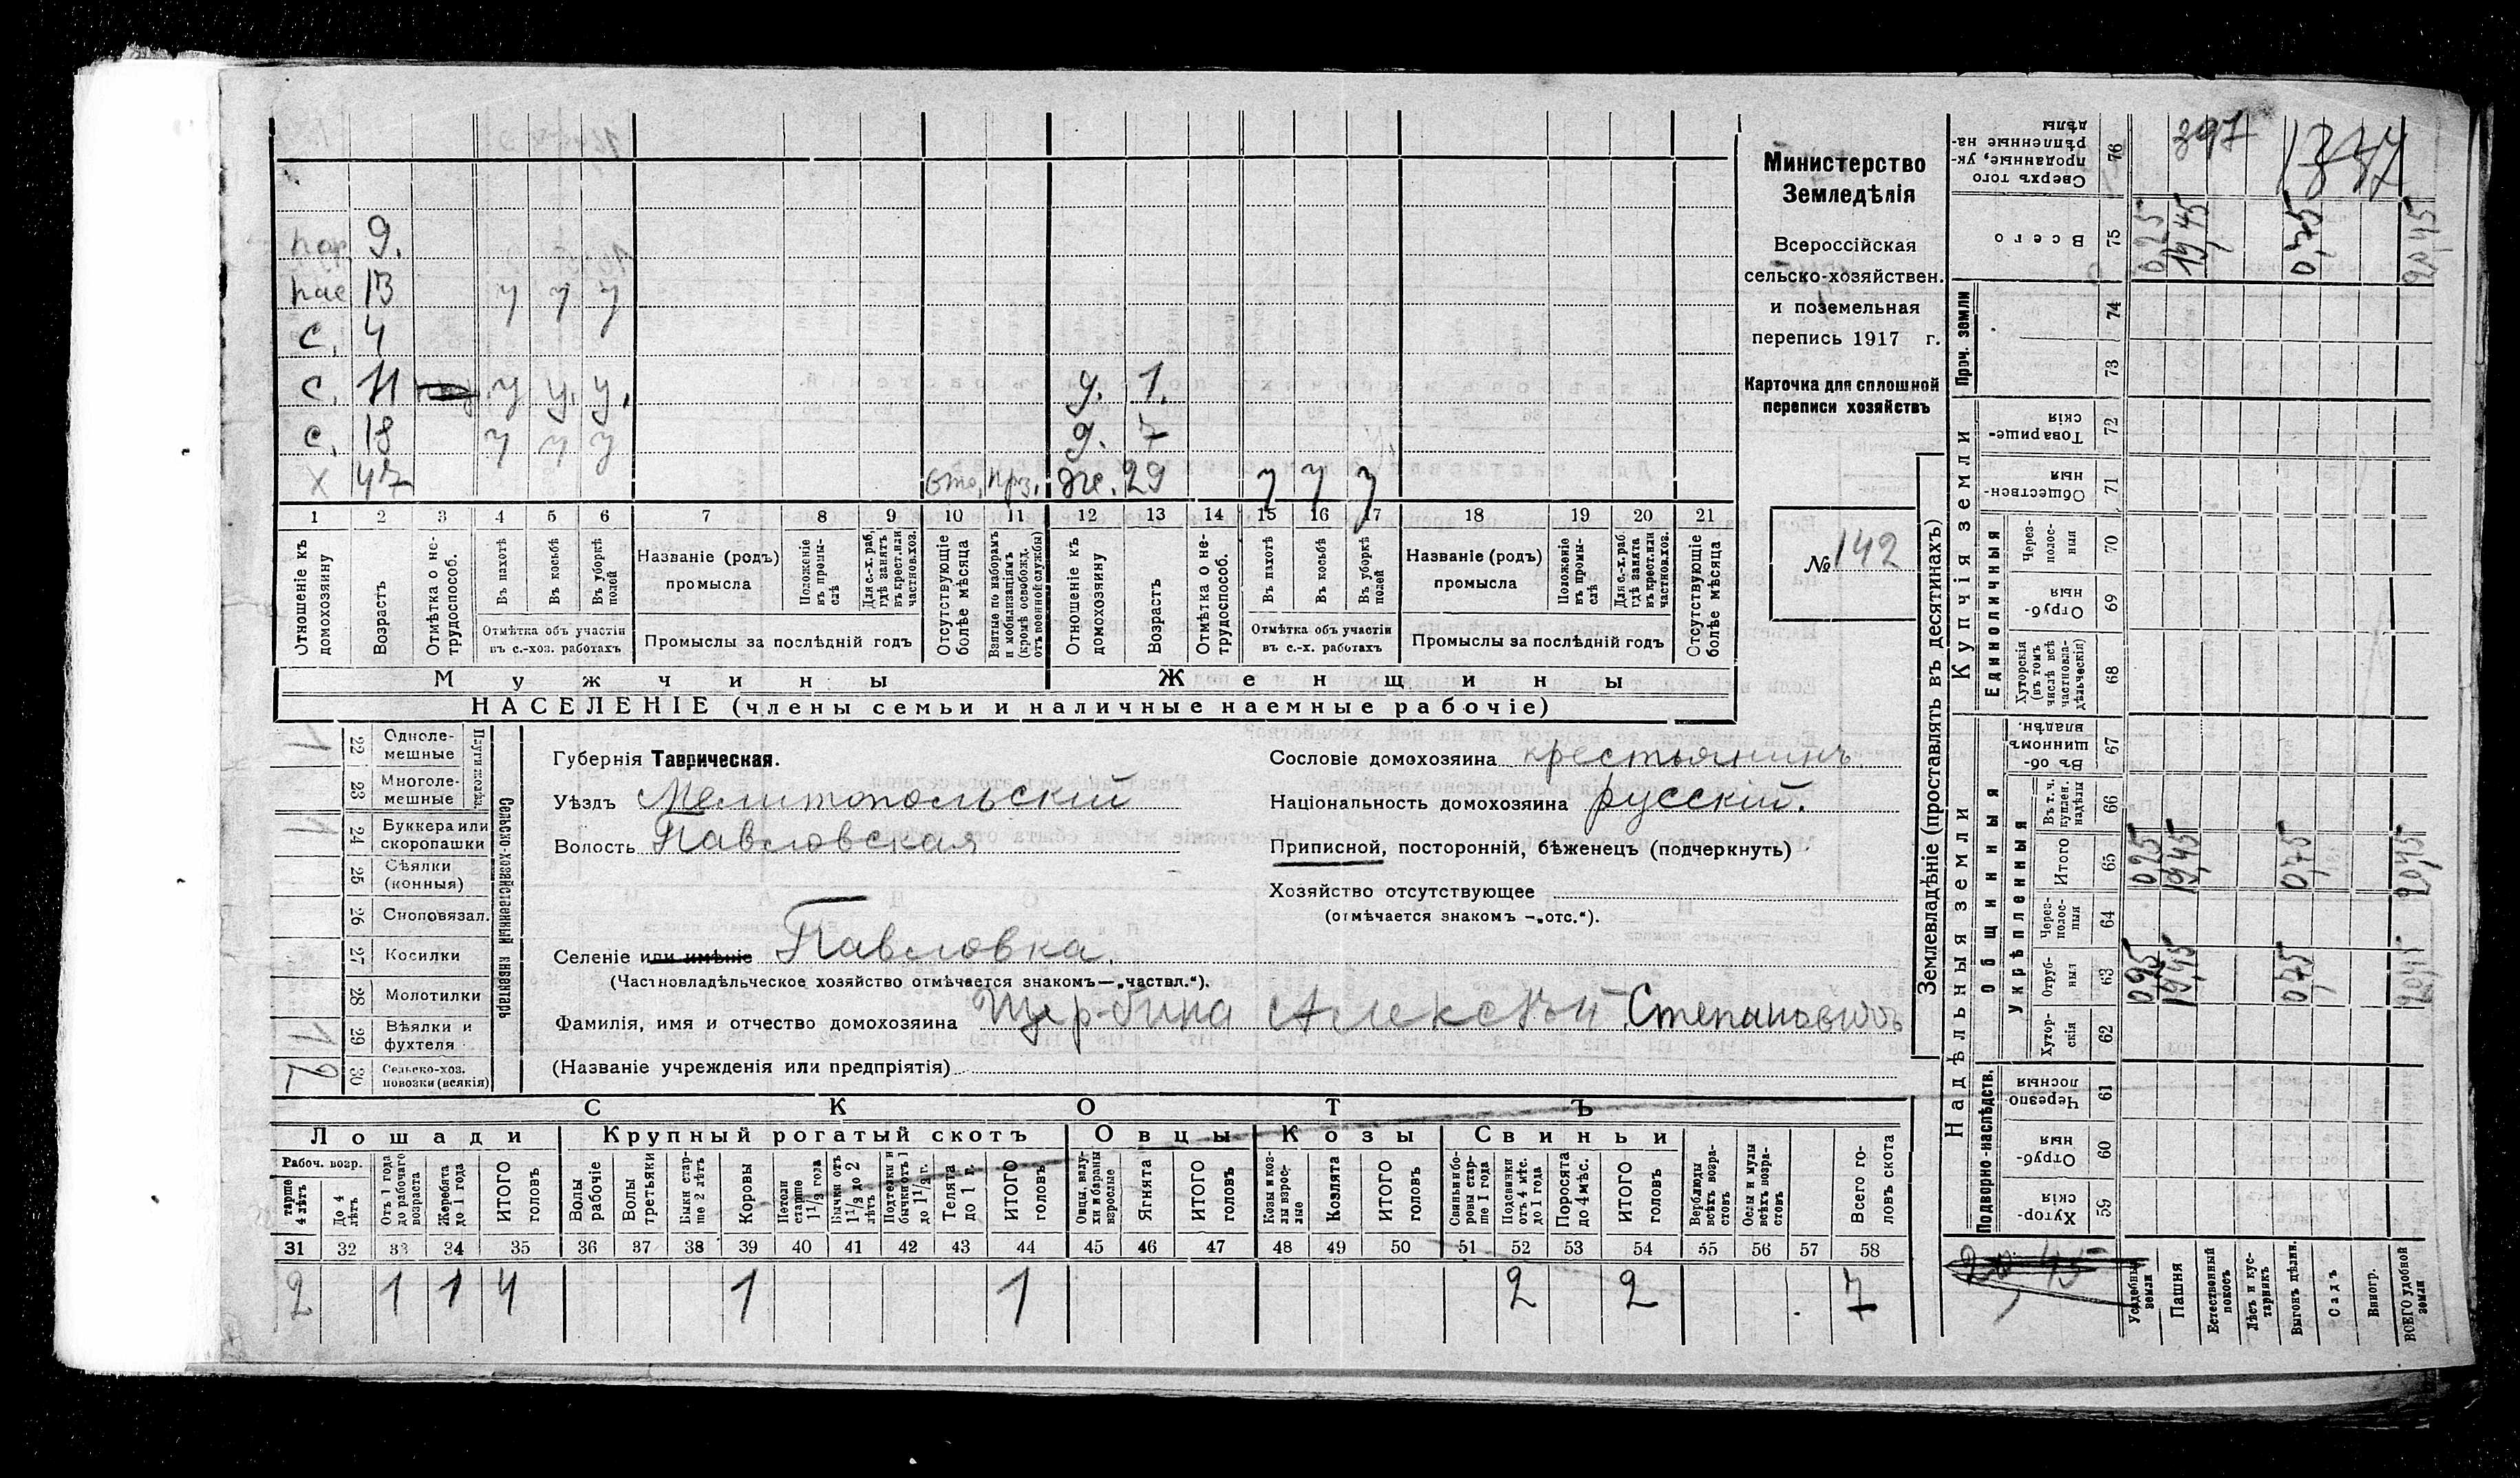 Министерство
Земледѣлія
Всероссійская
сельско-хозяйствен.
и поземельная
перепись 1917 г.
Карточка для сплошной
переписи хозяйствъ
№ 142
9.
13 у у у
с. 4
с. 11 у у. у. д. 1.
с. 18 у у у д. 7
х 47 отс. прз. же. 29 у у у
1 2 3 4 5 6 7 8 9 10 11 12 13 14 15 16 17 18 19 20 21
Отношеніе къ домохозяину
Возрастъ
Отмѣтка о не-трудоспособ.
Въ пахотѣ
Въ косьбѣ
Въ уборкѣ полей
Отмѣтка объ участіи
въ с.-хоз. работахъ
Названіе (родъ)
промысла
Положеніе въ промы-слѣ
Для с.-х. раб. гдѣ занятъ въ крест. или частновл. хоз.
Промыслы за послѣдній годъ
Отсутствующіе болѣе мѣсяца
Взятые по наборамъ и мобилизаціямъ (кромѣ освобожд. отъ военной службы)
Отношеніе къ домохозяину
Возрастъ
Отмѣтка о не-трудоспособ.
Въ пахотѣ
Въ косьбѣ
Въ уборкѣ полей
Отмѣтка объ участіи
въ с.-х. работахъ
Названіе (родъ)
промысла
Положеніе въ промы-слѣ
Для с.-х. раб. гдѣ занята въ крест. или частновл. хоз.
Промыслы за послѣдній годъ
Отсутствующіе болѣе мѣсяца
Мужчины Женщины
НАСЕЛЕНІЕ (члены семьи и наличные наемные рабочіе)
Сельско-хозяйственный инвентарь
1 22 Однолемешные
23 Многолемешные
1 24 Буккера или скоропашки
25 Сѣялки (конныя)
26 Сноповязал.
27 Косилки
28 Молотилки
1 29 Вѣялки и фухтеля
2 30 Сельско-хоз. повозки (всякія)
Губернія Таврическая.
Уѣздъ Мелитопольскій
Волость Павловская
Сословіе домохозяина крестьянинъ
Національность домохозяина русскій.
Приписной, посторонній, бѣженецъ (подчеркнуть)
Хозяйство отсутствующее
(отмѣчается знакомъ —„отс.“).
Селеніе или имѣніе Павловка.
(Частновладѣльческое хозяйство отмѣчается знакомъ—„частвл.“).
Фамилія, имя и отчество домохозяина Щербина Алексѣй Степановичъ
(Названіе учрежденія или предпріятія)
СКОТЪ
Лошади Крупный рогатый скотъ Овцы Козы Свиньи
Рабоч. возр.
старше 4 лѣтъ
До 4 лѣтъ
Отъ 1 года до рабочаго возраста
Жеребята до 1 года
ИТОГО головъ
Волы рабочіе
Волы третьяки
Быки стар-ше 2 лѣтъ
Коровы
Нетели старше 1½ года
Бычки отъ 1½ до 2 лѣтъ
Подтелки и бычки отъ 1 до 1½ г.
Телята до 1 г.
ИТОГО головъ
Овцы, валу-хи и бараны взрослые
Ягнята
ИТОГО головъ
Козы и коз-лы взрос-лые
Козлята
ИТОГО головъ
Свиньи и бо-ровы стар-ше 1 года
Подсвинки отъ 4 мѣс. до 1 года
Поросята до 4 мѣс.
ИТОГО головъ
Верблюды всѣхъ возра-стовъ
Ослы и мулы всѣхъ возра-стовъ
Всего го-ловъ скота
31 32 33 34 35 36 37 38 39 40 41 42 43 44 45 46 47 48 49 50 51 52 53 54 55 56 57 58
2 1 1 4 1 1 2 2 7
Землевладѣніе (проставлять въ десятинахъ)
Надѣльныя земли
Купчія земли
Проч. земли
Подворно-наслѣдств.
Общинныя
Укрѣпленныя
Единоличныя
Сверхъ того проданные, ук-рѣпленные на-дѣлы 76 397 1337
Всего 75 0,25 19,45 0,75 20,45
74
73
Товарище-скія 72
Обществен-ныя 71
Через-полос-ныя 70
Отруб-ныя 69
Хуторскія (въ томъ числѣ всѣ частновла-дѣльческія) 68
Въ об-щинномъ владѣн. 67
Въ т. ч. куплен. надѣлы 66
Итого 65 0,25 19,45 0,75 20,45
Через-полос-ныя 64
Отруб-ныя 63 0,25 19,45 0,75 20,45
Хутор-скія 62
Черезпо-лосныя 61
Отруб-ныя 60
Хутор-скія 59
Усадебныя земли
Пашня
Естественный покосъ
Лѣсъ и кус-тарникъ
Выгонъ цѣлин.
Садъ
Виногр.
ВСЕГО удобной земли